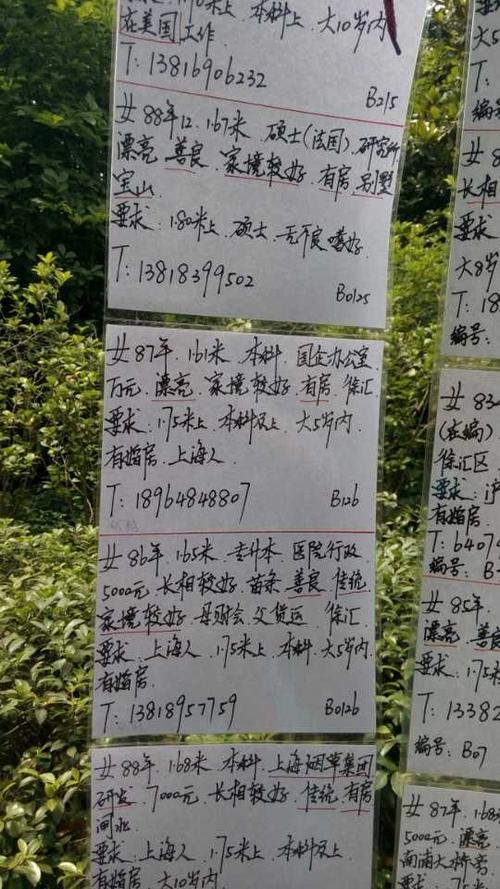 在美国工作
T：13816906232
B215
女88年12、1.67米、硕士（法国）、研究所
漂亮、善良、家境较好、有房、别墅
宝山
要求：1.80米上、硕士、无不良嗜好
T：13818399502
B0125
女87年、1.61米、本科、国企办公室
万元、漂亮、家境较好、有房、徐汇
要求：1.75米上、本科及上、大5岁内
有婚房、上海人
T：18964848807
B126
女86年、1.65米、专升本、医院行政
5000元、长相较好、苗条、善良、传统
家境较好、母财会、父货运、徐汇
要求：上海人、1.75米上、本科、大5岁内
有婚房
T：13818957759
B0126
女88年、1.68米、本科、上海烟草集团
研发、7000元、长相较好、传统、有房
闸北
要求：上海人、1.75米上、本科及上
有婚房、大10岁内
大5
编号
女8
长相
要求
大8岁
T：18
编号：
女83
（在编）
徐汇区
要求：沪
有婚房
T：6407
编号：B
女85年
漂亮、善良
要求：1.75米
T：13382
编号：B07
女87年、1.68
5000元、漂亮
要求